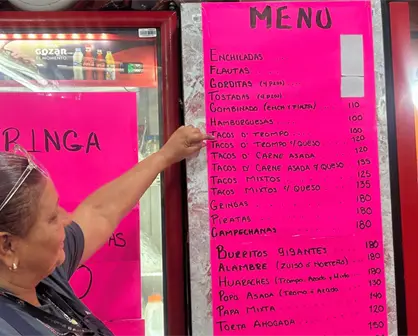 GOZAR
EL MOMENTO
RINGA
MENU
ENCHILADAS
FLAUTAS
GORDITAS (4 PZAS)
TOSTADAS (4 PZAS)
COMBINADO (ENCH Y FLAUTA) 110
HAMBURGUESAS 100
TACOS D' TROMPO 100
TACOS D' TROMPO Y/QUESO 120
TACOS D' CARNE ASADA 120
TACOS D' CARNE ASADA Y QUESO 135
TACOS MIXTOS 125
TACOS MIXTOS Y/QUESO 135
GRINGAS 180
PIRATAS 180
CAMPECHANAS 180
BURRITOS GIGANTES 180
ALAMBRE (SUISO Y NORTEÑO) 180
HUARACHES (TROMPO, ASADA Y MIXTO) 130
PAPA ASADA (TROMPO Y ASADA) 140
PAPA MIXTA 150
TORTA AHOGADA 150